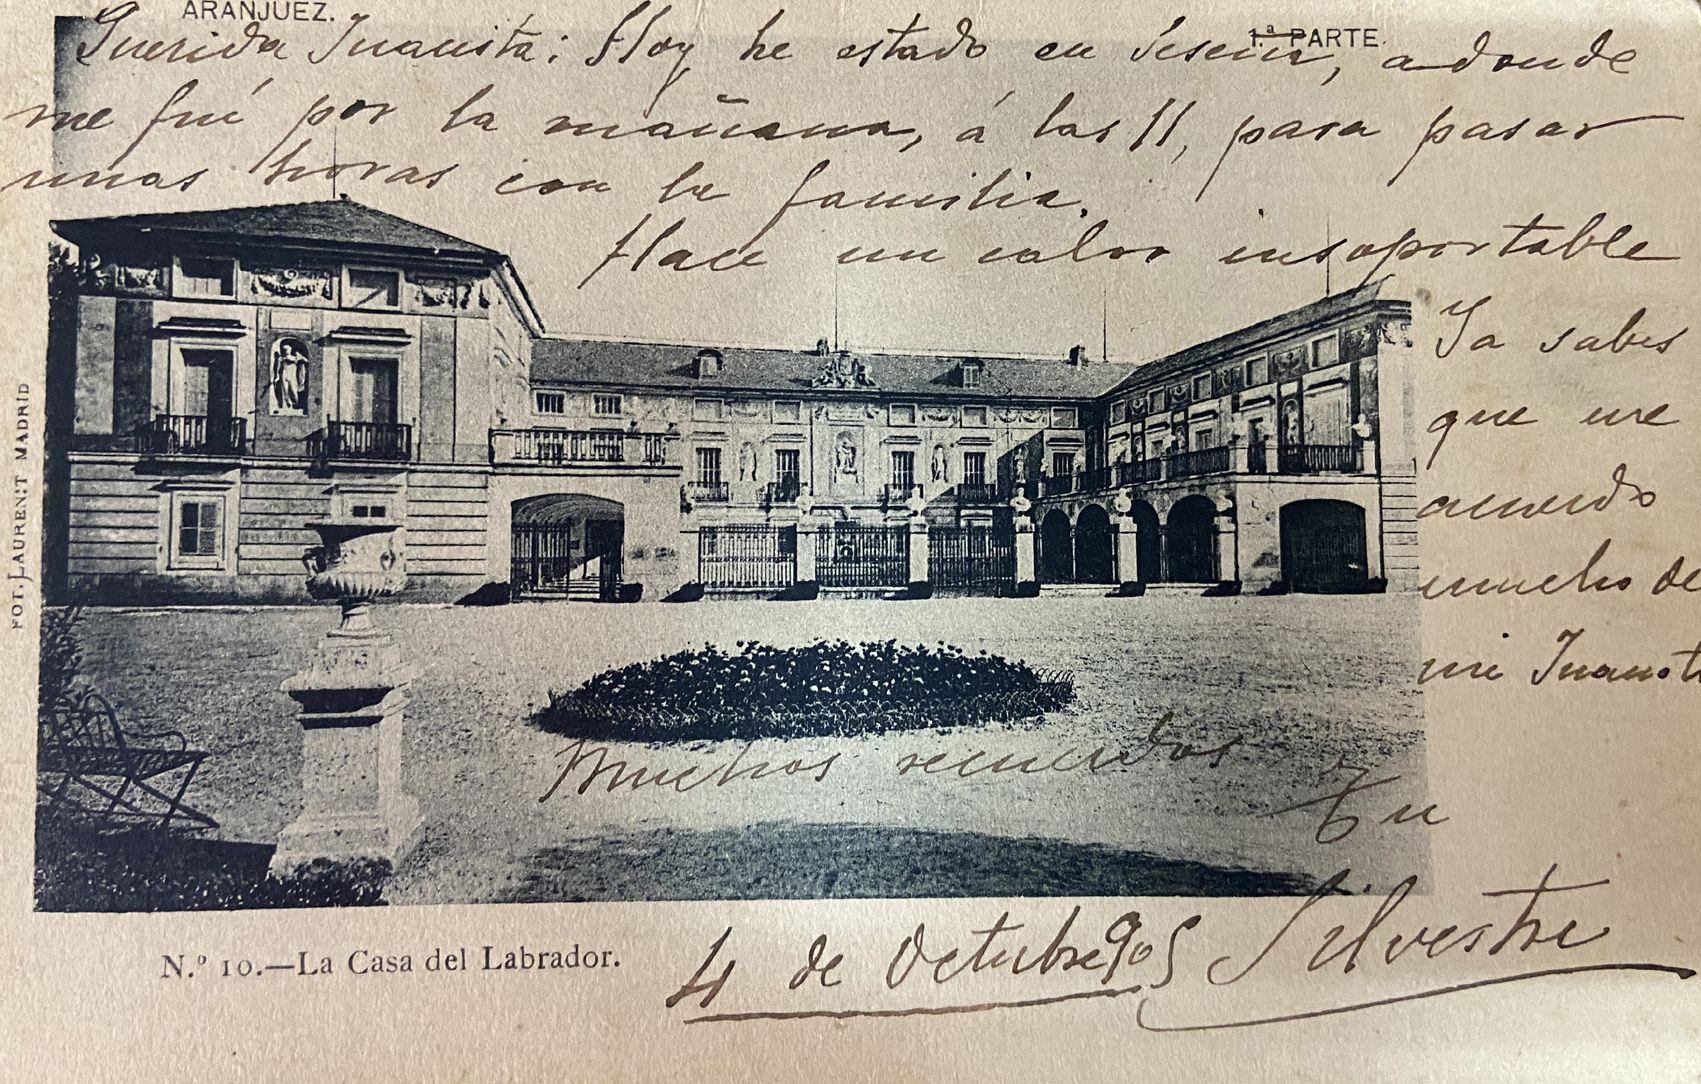 ARANJUEZ.
1.ª PARTE.
Querida Juanita: Hoy he estado en Seseña, a donde
me fuí por la mañana, á las 11, para pasar
unas horas con la familia.
Hace un calor insoportable
Ya sabes
que me
acuerdo
mucho de
mi Juanita
Muchos recuerdos de
Tu
Silvestre
4 de Octubre 905
FOT. LAURENT MADRID
N.º 10.—La Casa del Labrador.